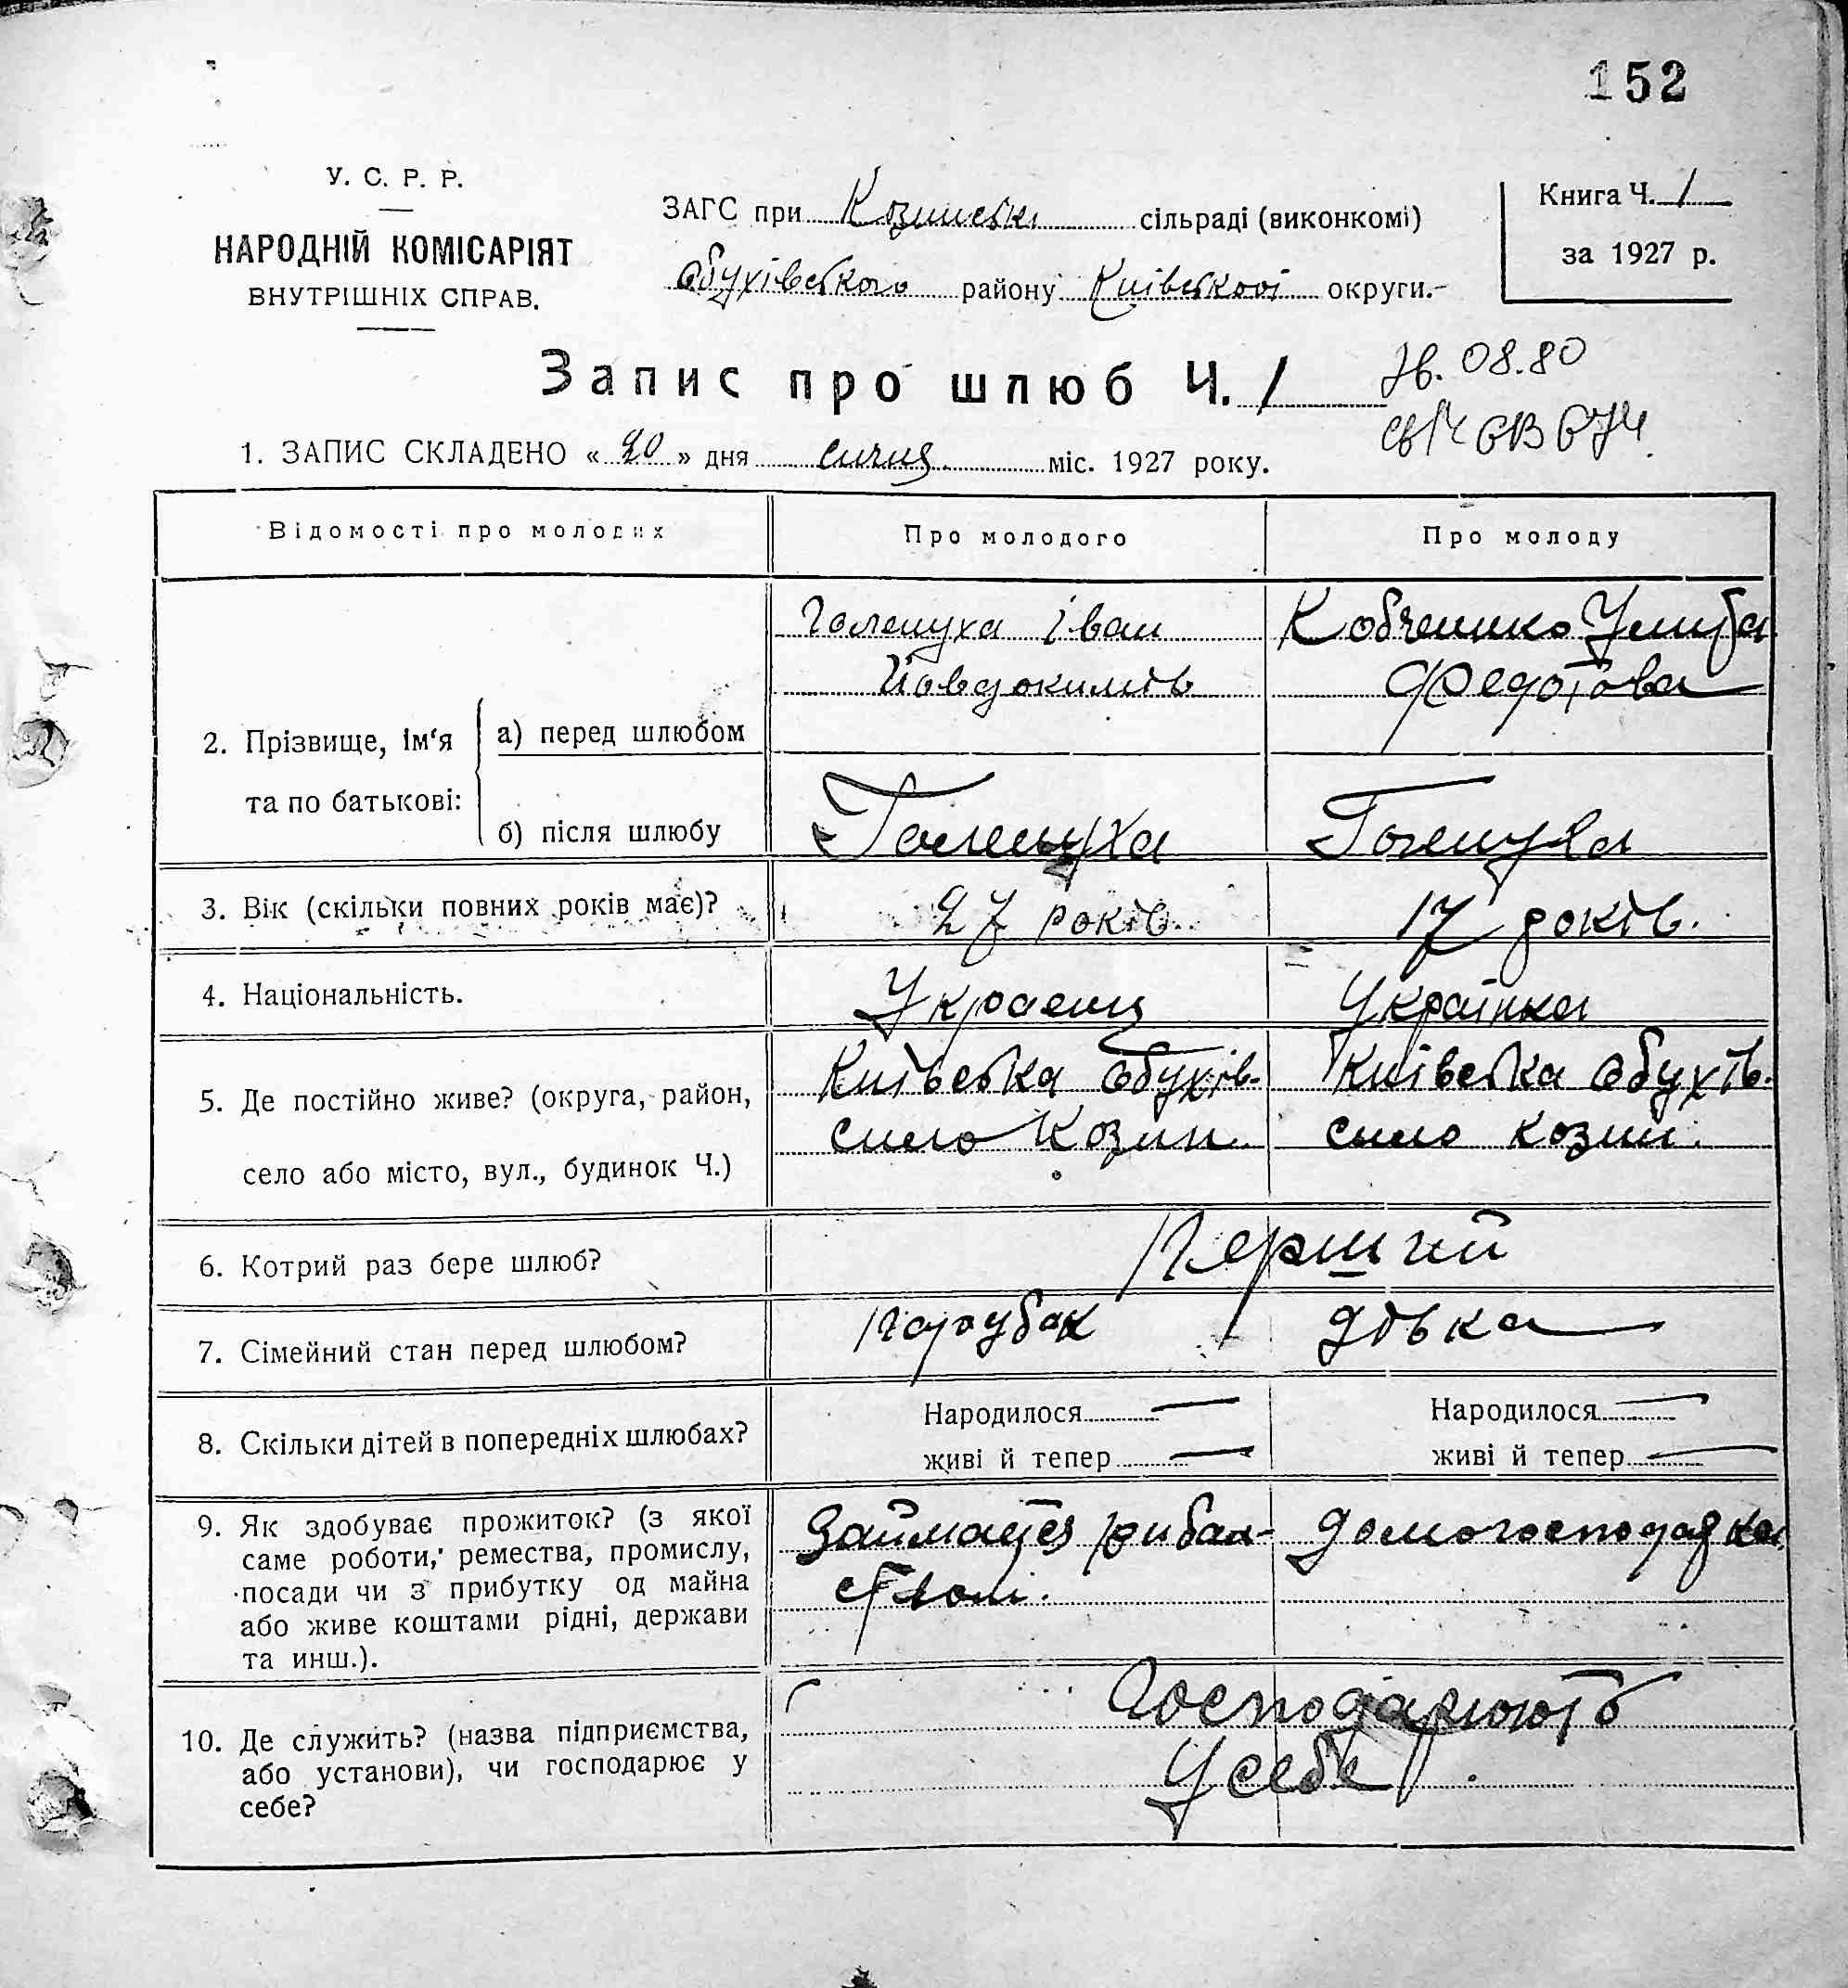 152
У. С. Р. Р.
НАРОДНІЙ КОМІСАРІЯТ
ВНУТРІШНІХ СПРАВ.
ЗАГС при Козинські сільраді (виконкомі)
Обухівського району Київської округи.
Книга Ч. 1
за 1927 р.
Запис про шлюб Ч. 1
08.80
1. ЗАПИС СКЛАДЕНО « 20 » дня січня міс. 1927 року.
Відомості про молодих
Про молодого
Про молоду
2. Прізвище, ім'я
та по батькові:
а) перед шлюбом
Галенуха Іван
Йовдокимів
Кобченко
Федотова
б) після шлюбу
Галенуха
Галенуха
3. Вік (скільки повних років має)?
27 років.
17 років.
4. Національність.
Украенц
Українка
5. Де постійно живе? (округа, район,
село або місто, вул., будинок Ч.)
Київська Обухів-
село Козин.
Київська Обухів-
село Козин.
6. Котрий раз бере шлюб?
Перший
7. Сімейний стан перед шлюбом?
парубак
дівка
8. Скільки дітей в попередніх шлюбах?
Народилося —
живі й тепер —
Народилося —
живі й тепер —
9. Як здобуває прожиток? (з якої
саме роботи, ремества, промислу,
посади чи з прибутку од майна
або живе коштами рідні, держави
та инш.).
Займаєця рибал-
ством.
домогосподарка
10. Де служить? (назва підприємства,
або установи), чи господарює у
себе?
Господарюють
у себе.